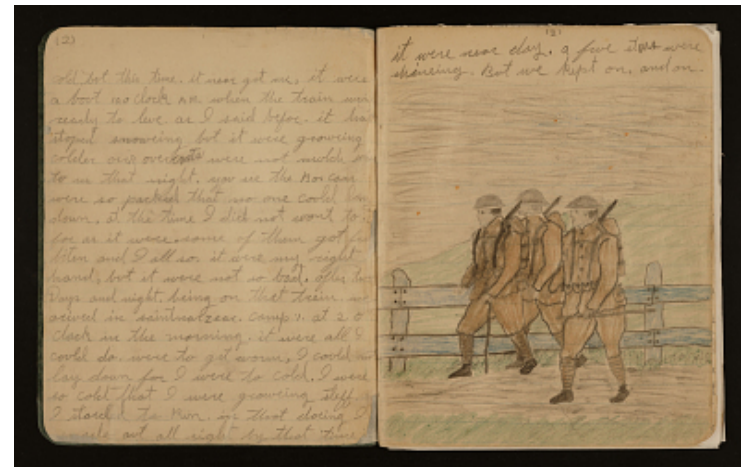 (2)
cold but this time. it near got me, it were
a bout 12 oclock AM when the train were
ready to live as I said befor. it had
stoped snowing but it were growing
colder our overcoats were not much
to us that night. you see the Box cars
were so packed that no one could lay
down. at the time I did not want to
for as it were some of them got
biten and I all so. it were my right
hand, but it were not so bad. after two
Days and night. being on that train. we
arived in saintnalzear. camp 1. at 2 o
clock in the morning. it were all I
could do. were to get worm, I could not
lay down for I were to cold, I were
so cold that I were growing stiff
I started to Run. in that doing I
out all right by that time
(2)
it were near day. a few stars were
shinning. But we kept on. and on.